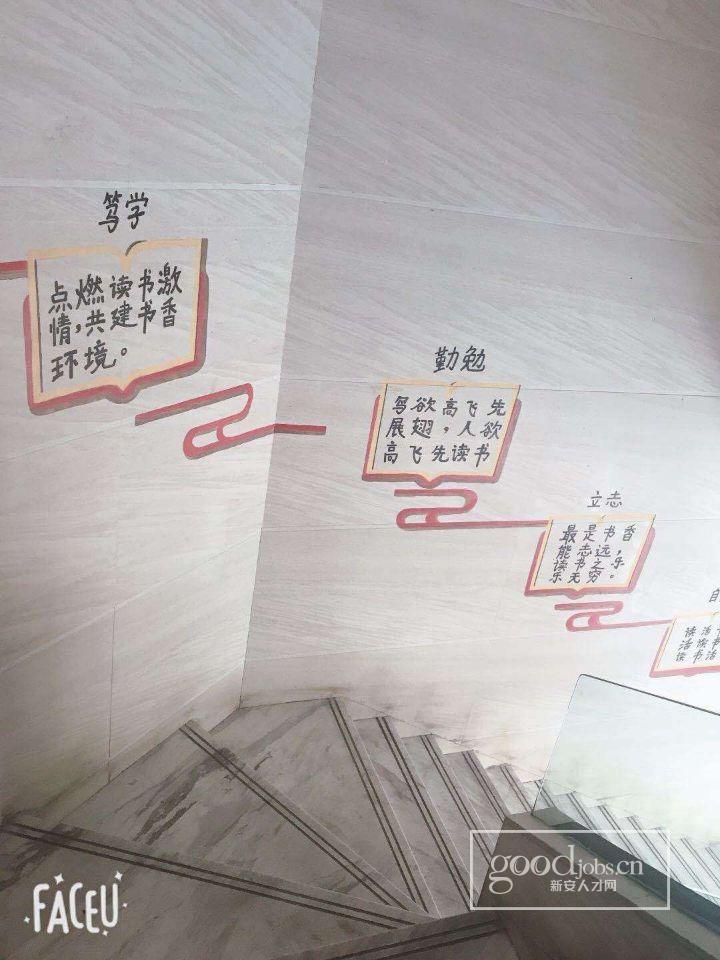 笃学
点燃读书激
情,共建书香
环境。
勤勉
鸟欲高飞先
展翅,人欲
高飞先读书
立志
最是书香
能志远,
读书之乐
乐无穷。
自
读活
活读书
读书活
FACEU
goodjobs.cn
新安人才网